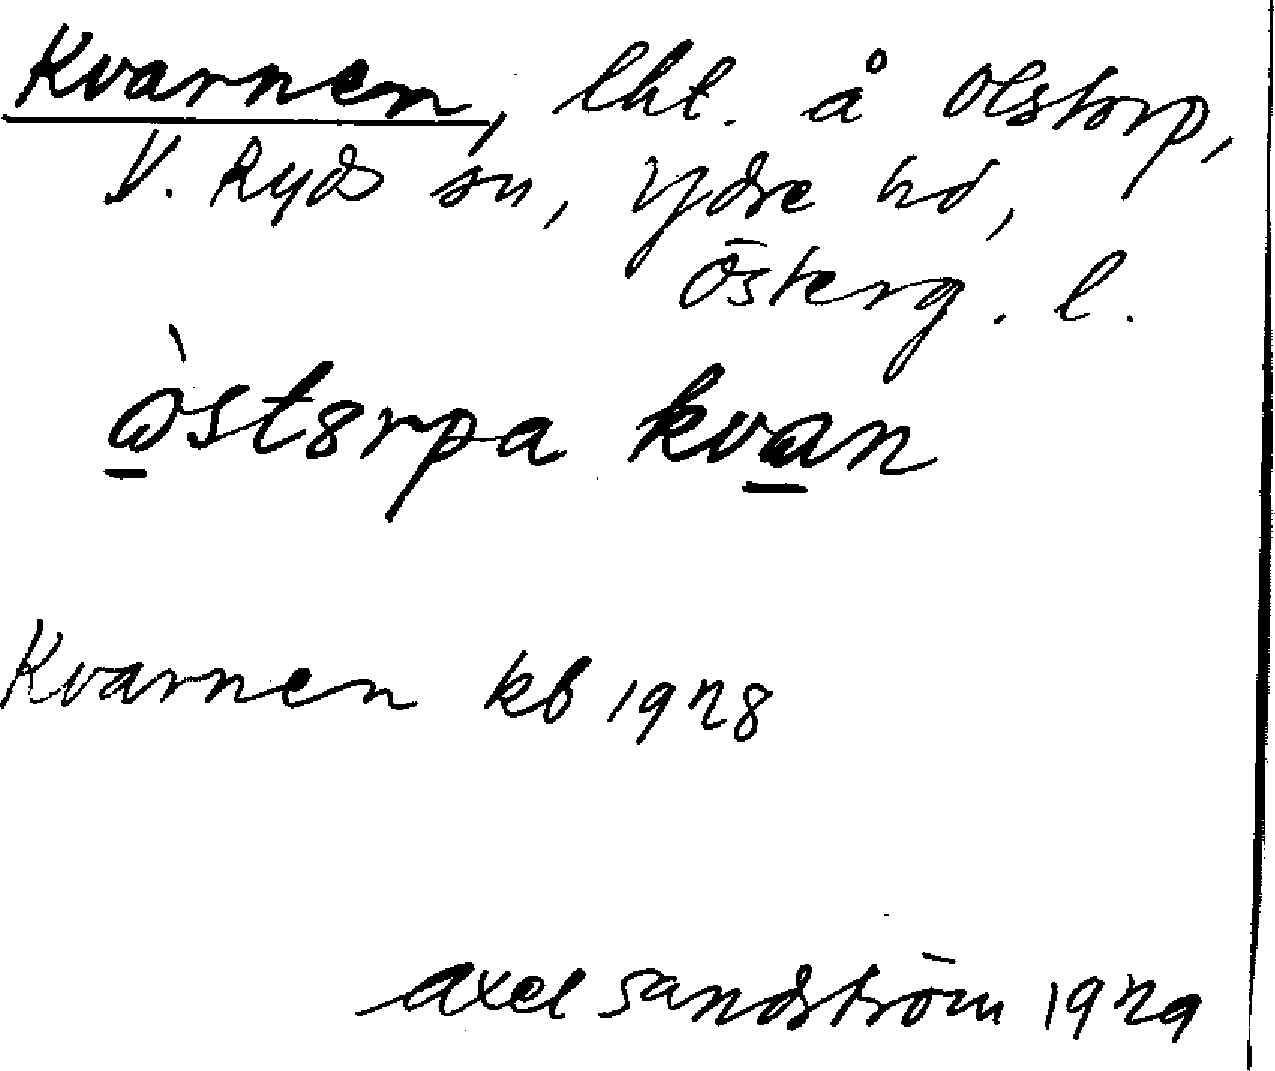 Kvarnen, lht. å Olstorp,
V. Ryds sn, Ydre hd,
Österg. l.
òstørpa kvan
Kvarnen kb 1928
Axel Sandström 1929